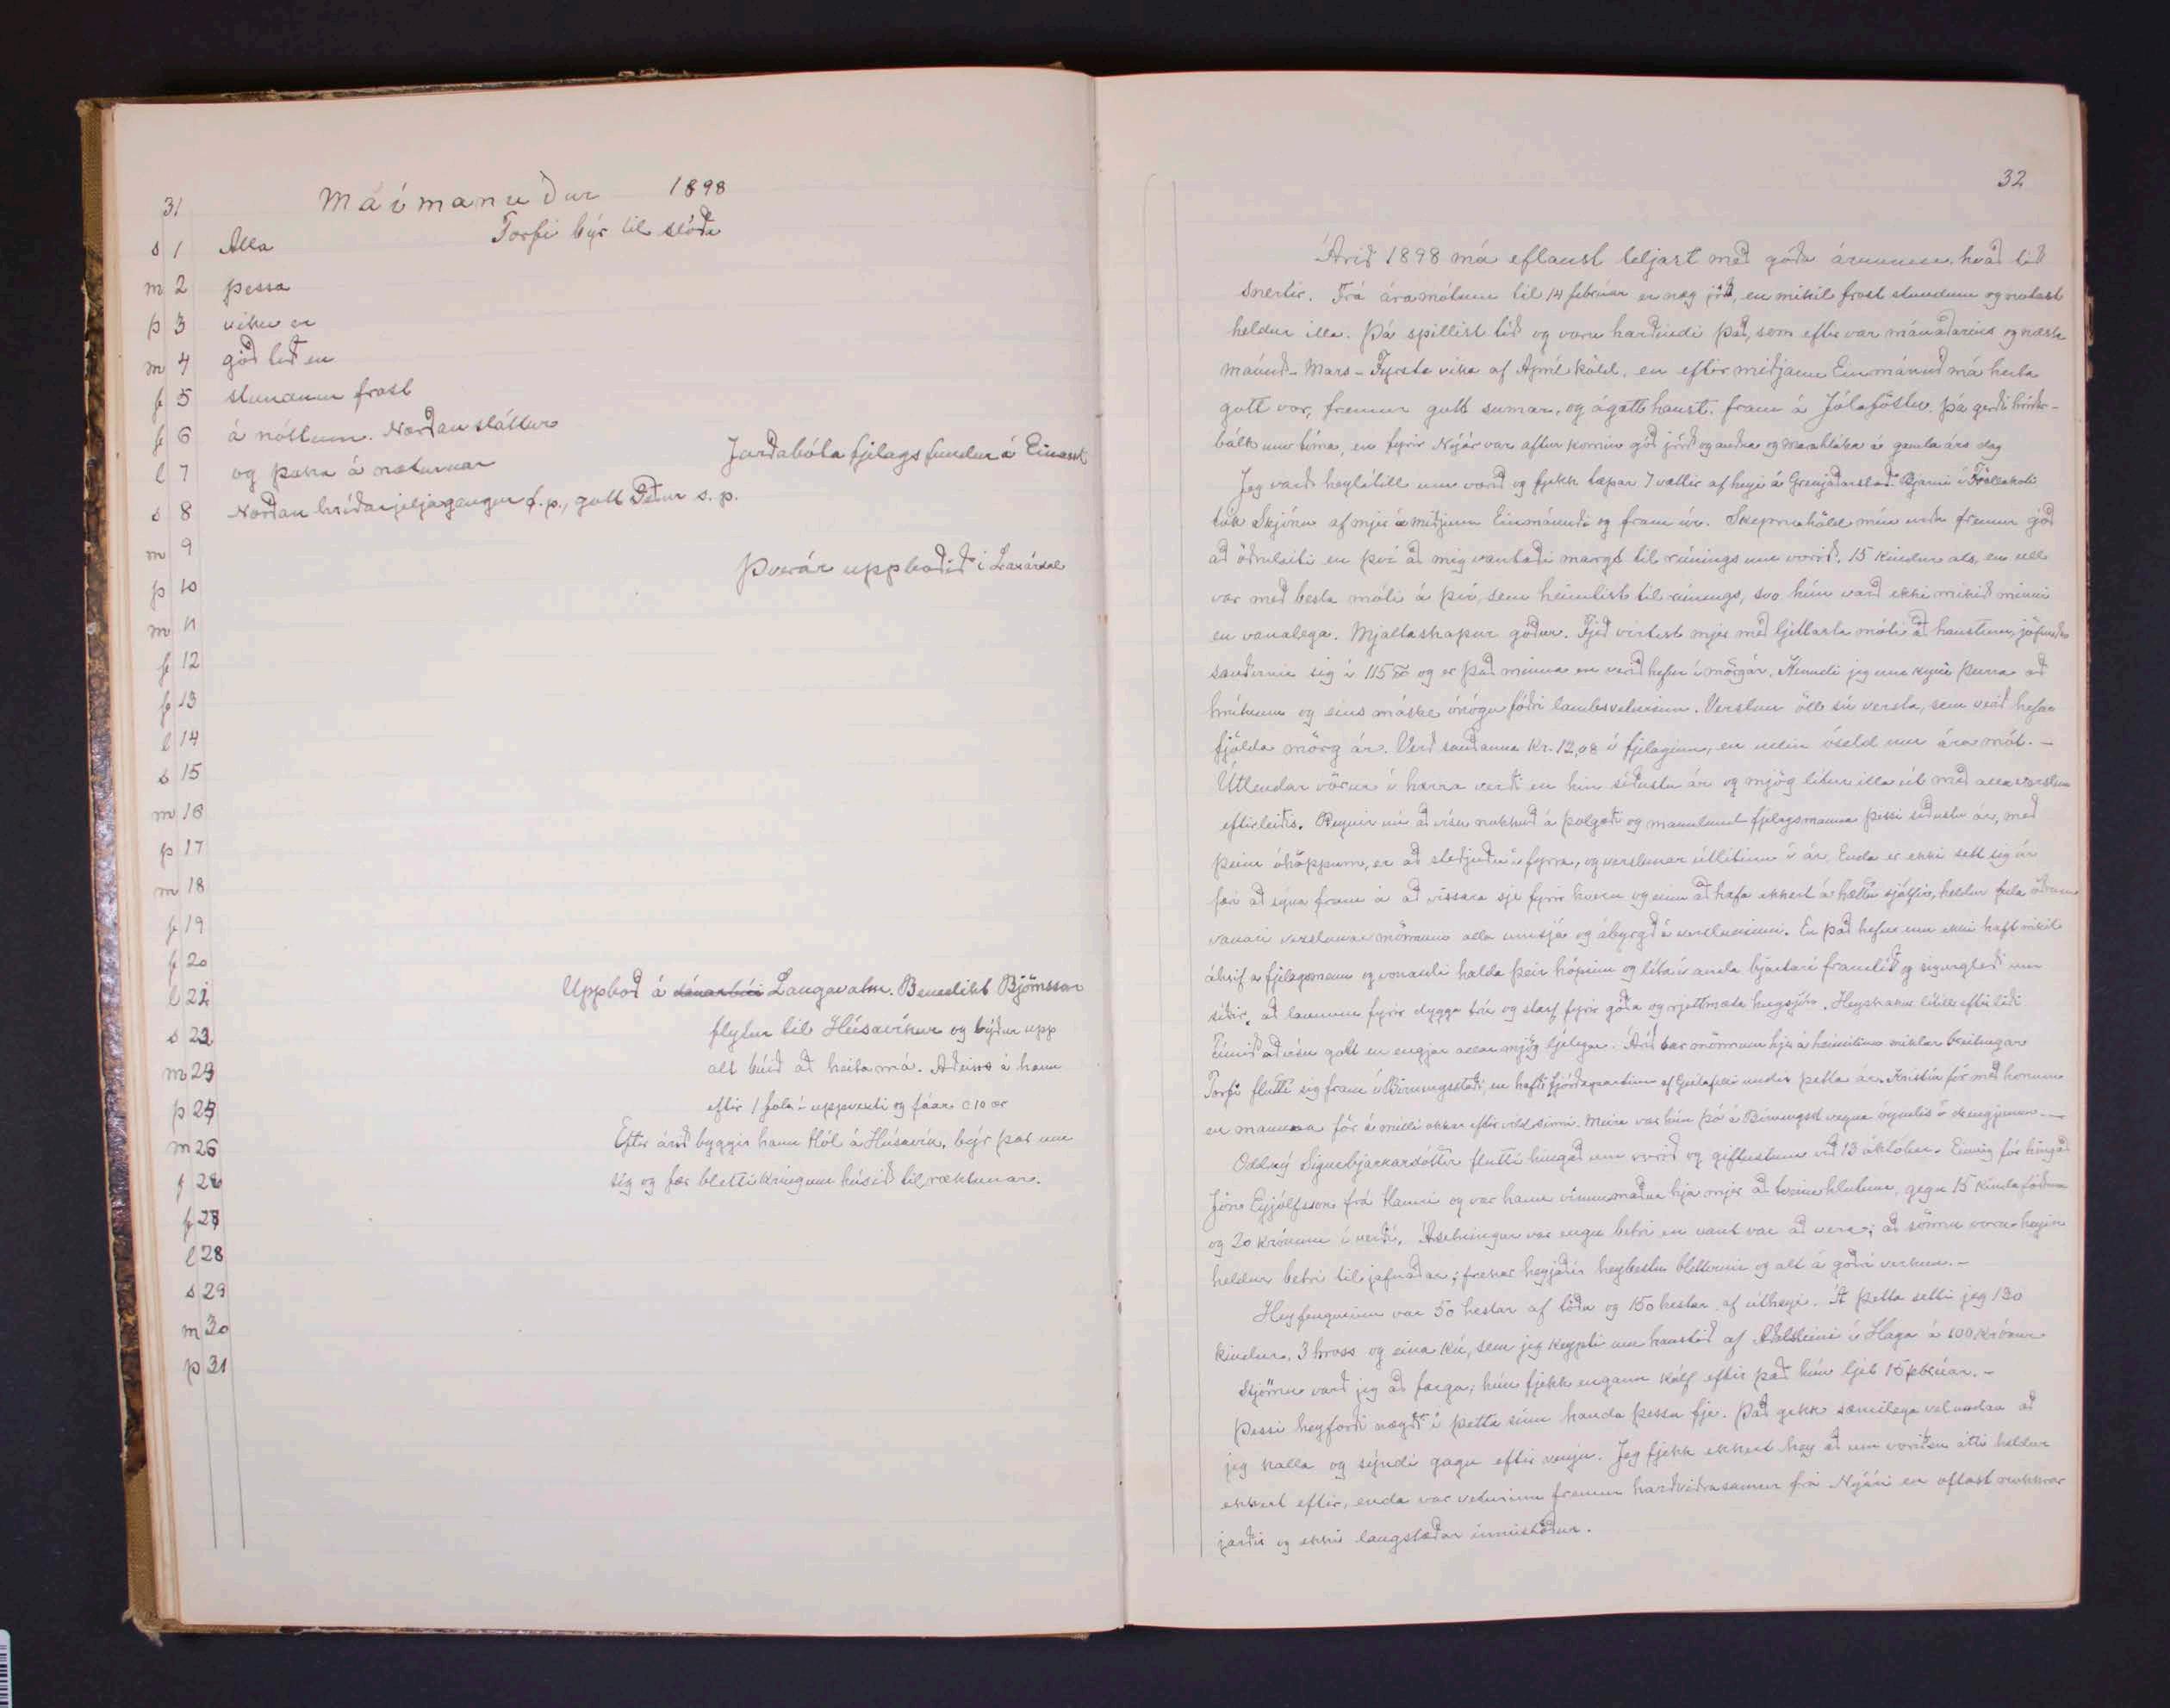 31
Máímanuður 1898
s 1 Alla Torfi býr til slóða
m 2 þessa
þ 3 viku er
m 4 góð tið en
f 5 stundum frost
f 6 á nóttum. Norðan sláttur
l 7 og þoka á næturnar Jarðabóta fjelags fundur á Einarsst
s 8 Norðan hríðarjeljagengur f. p., gott Veður s. p.
m 9
þ 10 Þverár uppboðið í Laxárdal
m 11
f 12
f 13
l 14
s 15
m 16
þ 17
m 18
f 19
f 20
l 21 Uppboð á dánarbúi Laugavatn. Benedikt Björnsson
s 22 flytur til Húsavíkur og býður upp
m 23 alt búið að heita má. Aðeins á hann
þ 24 eftir 1 fola í uppvexti og fáar c 10 ær
m 25 Eftir árið byggir hann Hól á Húsavík, býr þar um
f 26 sig og fær bletti kringum húsið til ræktunar.
f 27
l 28
s 29
m 30
þ 31
32
Árið 1898 má eflaust teljast með góðu árunum, hvað tíð
snertir. Frá áramótum til 14 februar er næg jörð, en mikil frost stundum og notast
heldur illa. Þá spillist tíð og voru harðindi það, som eftir var mánaðarins og næsta
mánuð - Mars - Fyrsta vika af Apríl köld, en eftir miðjann Einmánuð má heita
gott vor, fremur gott sumar, og ágætt haust, fram á Jólaföstu. Þá gerði hríðar-
bálk um tíma, en fyrir Nýár var aftur komin góð jörð og auða og marahláka á gamla árs dag
Jeg varð heylítill um vorið og fjekk tæpar 7 vættir af heyi á Grenjaðarstað. Bjarni í Tröllakoti
tók Skjónu af mjer á miðjum Einmánuði og fram úr. Skepnuhöld mín urðu fremur góð
að öðruleiti en því að mig vantaði margt til rúnings um vorið, 15 kindur als, en ull
var með besta móti á því, sem heimtist til rúnings, svo hún varð ekki mikið minni
en vanalega. Mjaltaskapur góður. Fjeð virtist mjer með ljettasta móti að haustinu, jöfnuðu
sauðirnir sig á 115 ℔ og er það minna en verið hefur í mörg ár. Kenndi jeg um kyni þeirra að
hrútnum og eins máske ónógu fóðri lambsveturinn. Verslun öll sú versta, sem verið hefur
fjölda mörg ár. Verð sauðanna Kr. 12,08 í fjelaginu, en ullin óseld um áramót. -
Útlendar vörur í hærra verði en hin síðustu ár og mjög lítur illa út með alla verslun
eftirleiðis. Reynir nú að vísu nokkuð á þolgæði og mannlund fjelagsmanna þessi síðustu ár, með
þeim óhöppum, er að steðjuðu í fyrra, og verslunar útlitinu í ár. Enda er ekki sett sig úr
færi að sýna fram á að vissara sje fyrir hvern og einn að hafa ekkert á hættu sjálfir, heldur fela öðrum
vanari verslunar mönnum alla umsjá og ábyrgð á versluninni. En það hefur um ekki haft mikil
áhrif á fjelagsmenn og vonandi halda þeir hópinn og líta í anda bjartari framtíð og sigurgleði um
síðir, að launum fyrir dygga trú og starf fyrir góða og rjettmæta hugsjón. Heyskapur lítill eftir tíð.
Túnið að vísu gott en engjar allar mjög ljelegar. Árið bar mönnum hjer á heimilinu miklar breitingar
Torfi flutti sig fram í Birningsstaði, en hafði fjórðapartinn af Geitafelli undir þetta ár. Kristín fór með honum
en mamma fór á milli okkar eftir vild sinni. Meira var hún þó á Birningsst vegna óyndis í drengjunum. -
Oddný Sigurbjarnardóttir flutti hingað um vorið og giftustum við 13 október. Einnig fór hingað
Jón Eyjólfsson frá Hamri og var hann vinnumaður hjá mjer að tveim hlutum, gegn 15 kinda fóðrum
og 20 krónum í verði. Ásetningur var engu betri en vant var að vera; að sönnu voru heyin
heldur betri til jafnaðar; frekar heyjaðir heybestu blettirnir og alt á góðri verkun. -
Heyfengurinn var 50 hestar af töðu og 150 hestar af útheyi. Á þetta setti jeg 130
kindur, 3 hross og eina kú, sem jeg keypti um haustið af Aðalsteini í Haga á 100 krónur
Stjörnu varð jeg að farga; hún fjekk engann kálf eftir það hún ljet 15 febrúar. -
Þessi heyforði nægði í þetta sinn handa þessu fje. Það gekk sæmilega vel undan að
jeg kalla og sýndi gagn eftir venju. Jeg fjekk ekkert hey að um vorið en átti heldur
ekkert eftir, enda var veturinn fremur harðviðrasamur frá Nýári en oftast nokkrar
jarðir og ekki langstæðar innistöður.